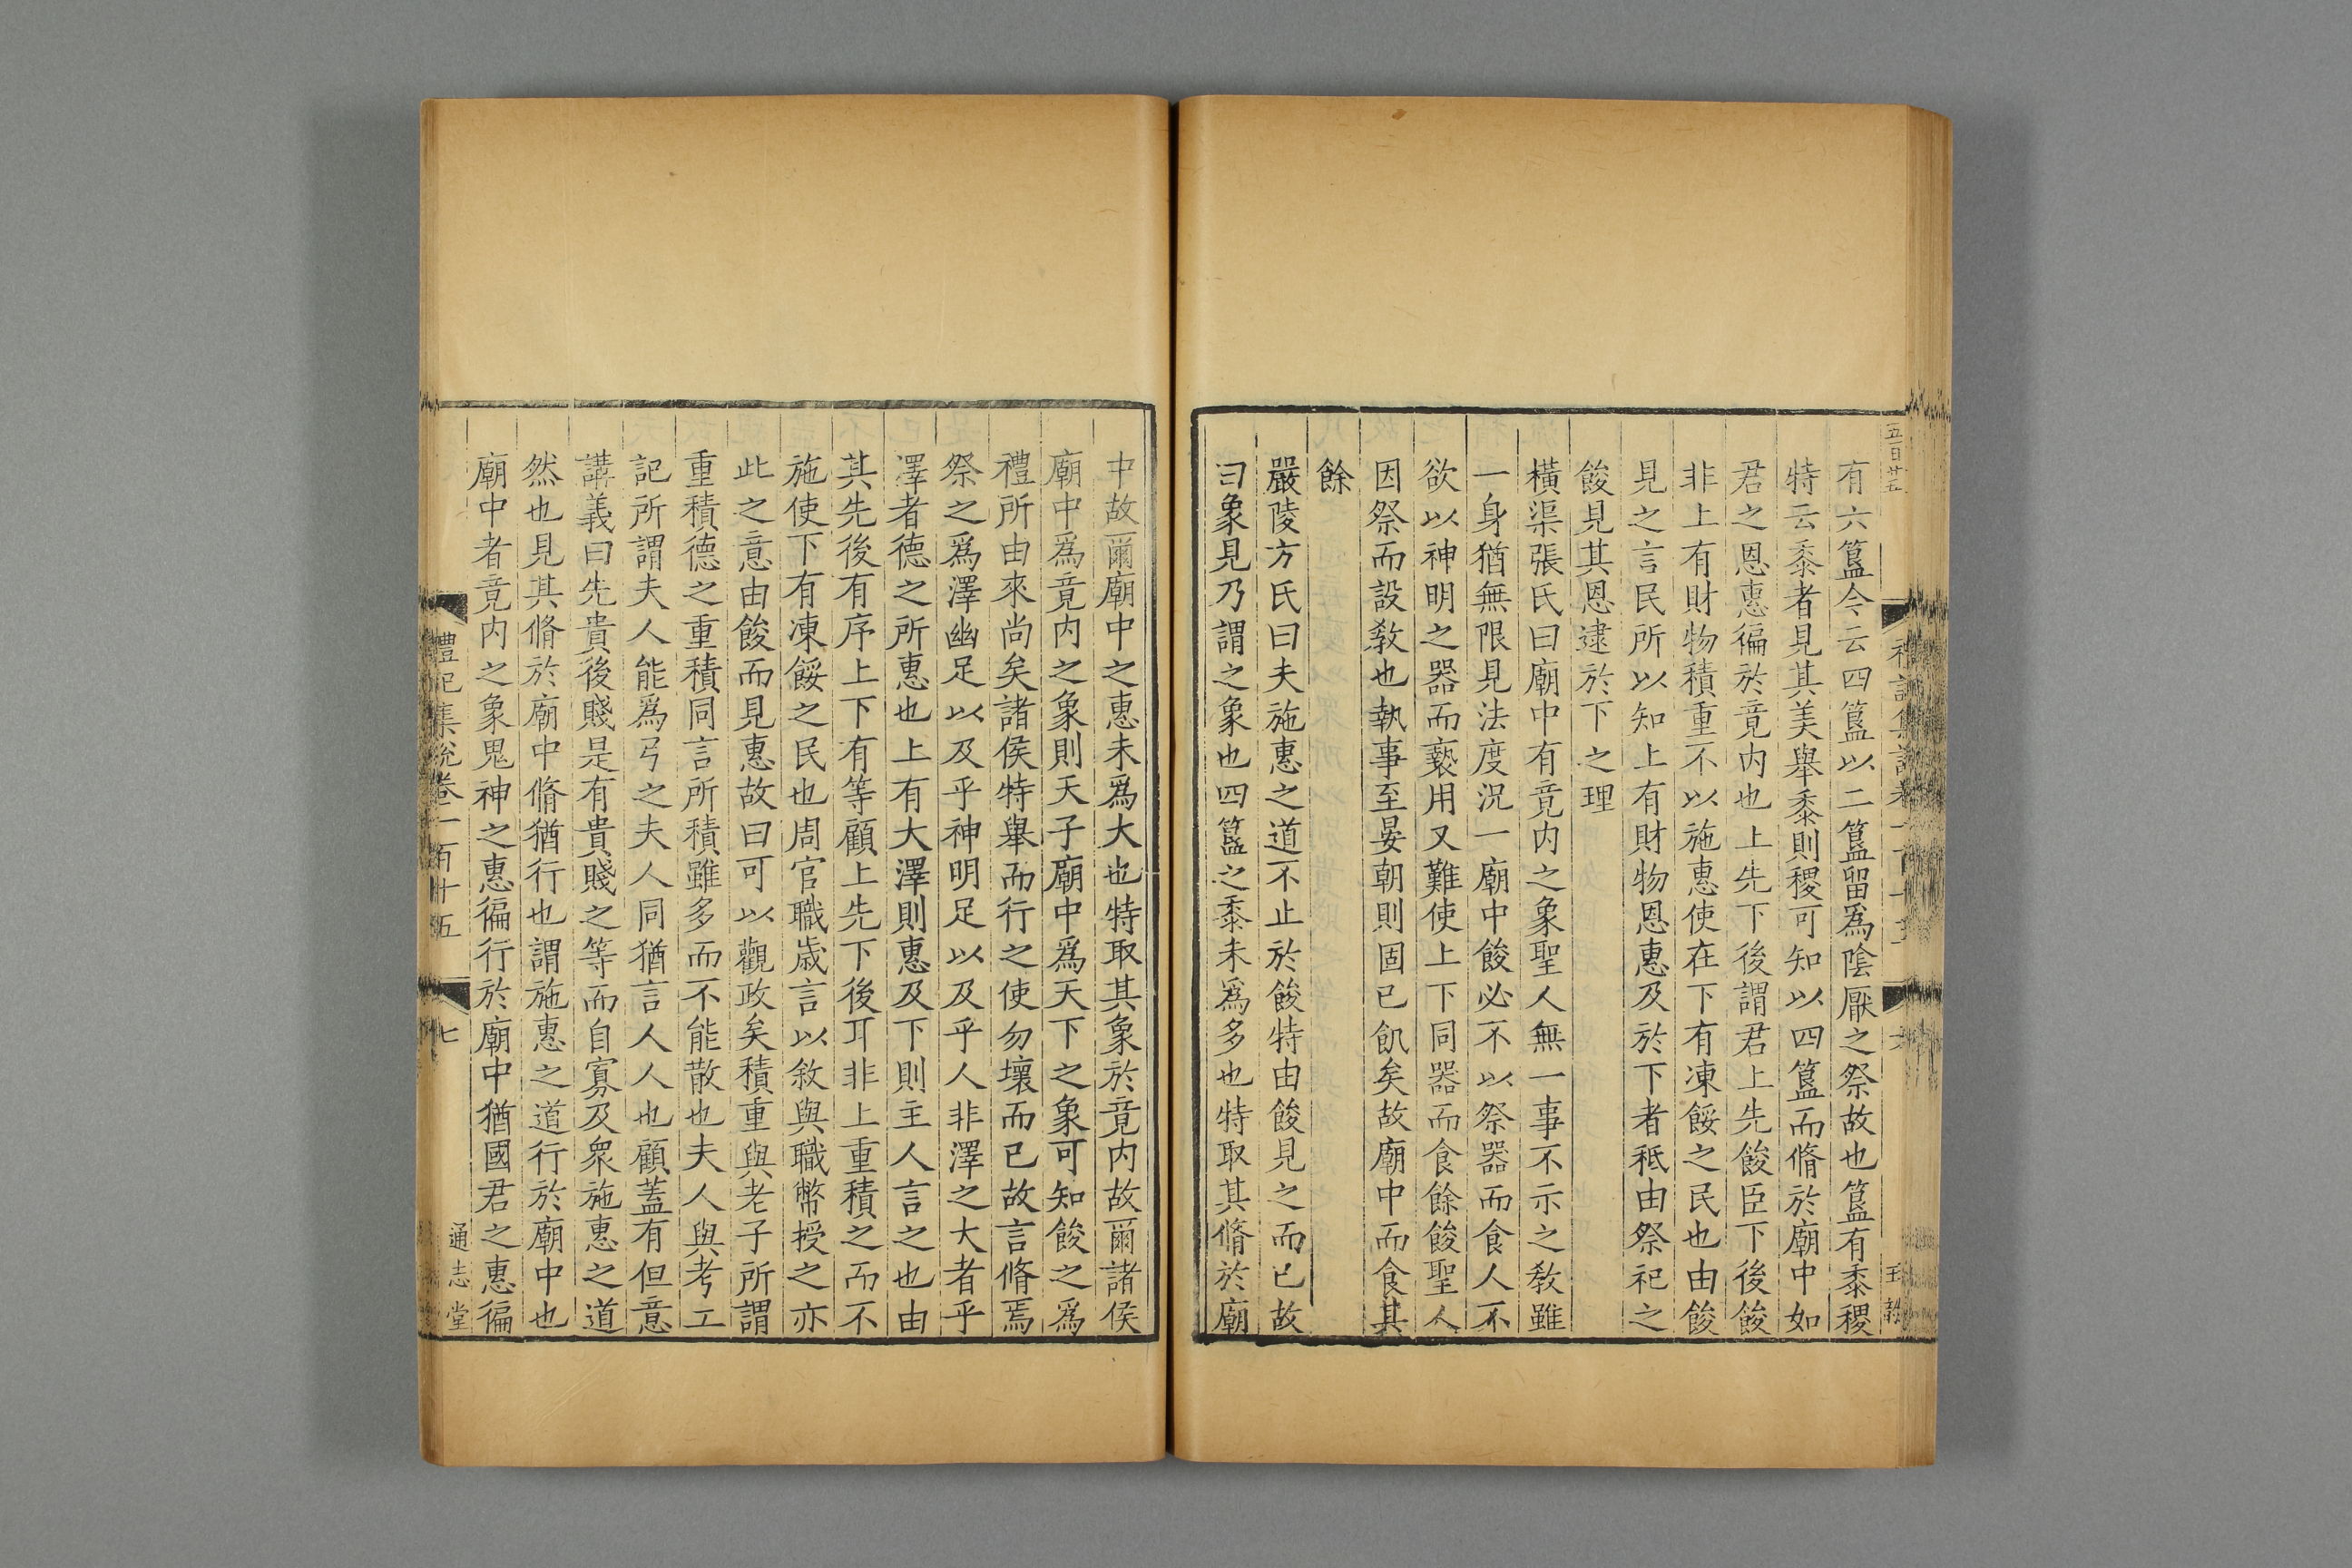 五百廿五
有六簋今云四簋以二簋留爲隂厭之祭故也簋有黍稷
特云黍者見其美舉黍則稷可知以四簋而脩於廟中如
君之恩惠徧於竟内也上先下後謂君上先餕臣下後餕
非上有財物積重不以施惠使在下有凍餒之民也由餕
見之言民所以知上有財物恩惠及於下者秪由祭祀之
餕見其恩逮於下之理
橫渠張氏曰廟中有竟内之象聖人無一事不示之敎雖
一身猶無限見法度況一廟中餕必不以祭器而食人不
欲以神明之器而褻用又難使上下同器而食餘餕聖人
因祭而設敎也執事至晏朝則固已飢矣故廟中而食其
餘
嚴陵方氏曰夫施惠之道不止於餕特由餕見之而已故
曰象見乃謂之象也四簋之黍未爲多也特取其脩於廟
中故爾廟中之惠未爲大也特取其象於竟内故爾諸侯
廟中爲竟内之象則天子廟中爲天下之象可知餕之爲
禮所由來尚矣諸侯特舉而行之使勿壞而已故言脩焉
祭之爲澤幽足以及乎神明足以及乎人非澤之大者乎
澤者德之所惠也上有大澤則惠及下則主人言之也由
其先後有序上下有等顧上先下後耳非上重積之而不
施使下有凍餒之民也周官職歳言以敘與職幣授之亦
此之意由餕而見惠故曰可以觀政矣積重與老子所謂
重積德之重積同言所積雖多而不能散也夫人與考工
記所謂夫人能爲弓之夫人同猶言人人也顧蓋有但意
講義曰先貴後賤是有貴賤之等而自寡及衆施惠之道
然也見其脩於廟中脩猶行也謂施惠之道行於廟中也
廟中者竟内之象鬼神之惠徧行於廟中猶國君之惠徧
禮記集說卷一百十五
七
通志堂